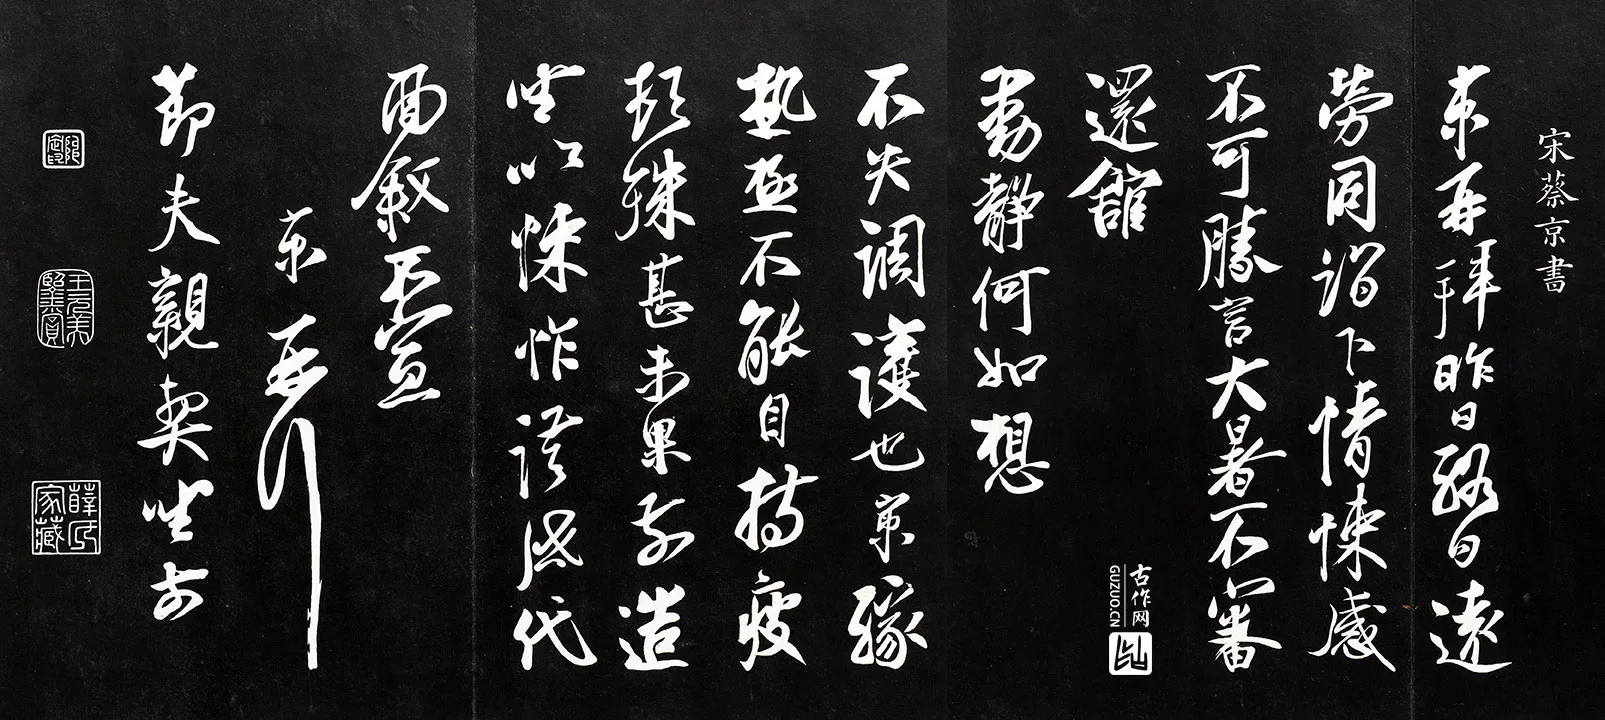 宋蔡京書
京再拜昨日終日遠
勞同詣下情悚感
不可勝言大暑不審
還館
動靜何如想
不失調護也京緣
熱極不能自持疲
頓殊甚未果前造
坐次悚怍謹啟代
面敘不宣
京再拜
節夫親契坐前
薛氏家藏
古作网
GUZUO.CN